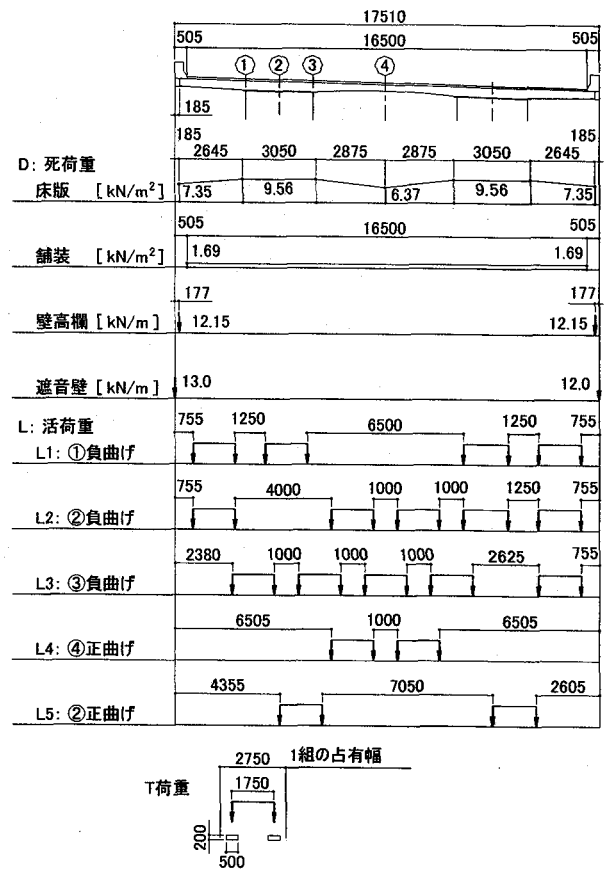 17510
505 16500 505
① ② ③ ④
185
185 185
2645 3050 2875 2875 3050 2645
D: 死荷重
床版 [kN/m²] 7.35 9.56 6.37 9.56 7.35
505 16500 505
舗装 [kN/m²] 1.69 1.69
177 177
壁高欄 [kN/m] 12.15 12.15
遮音壁 [kN/m] 13.0 12.0
L: 活荷重
755 1250 6500 1250 755
L1: ①負曲げ
755 4000 1000 1000 1250 755
L2: ②負曲げ
2380 1000 1000 1000 2625 755
L3: ③負曲げ
6505 1000 6505
L4: ④正曲げ
4355 7050 2605
L5: ②正曲げ
2750 1組の占有幅
T荷重 1750
200
500